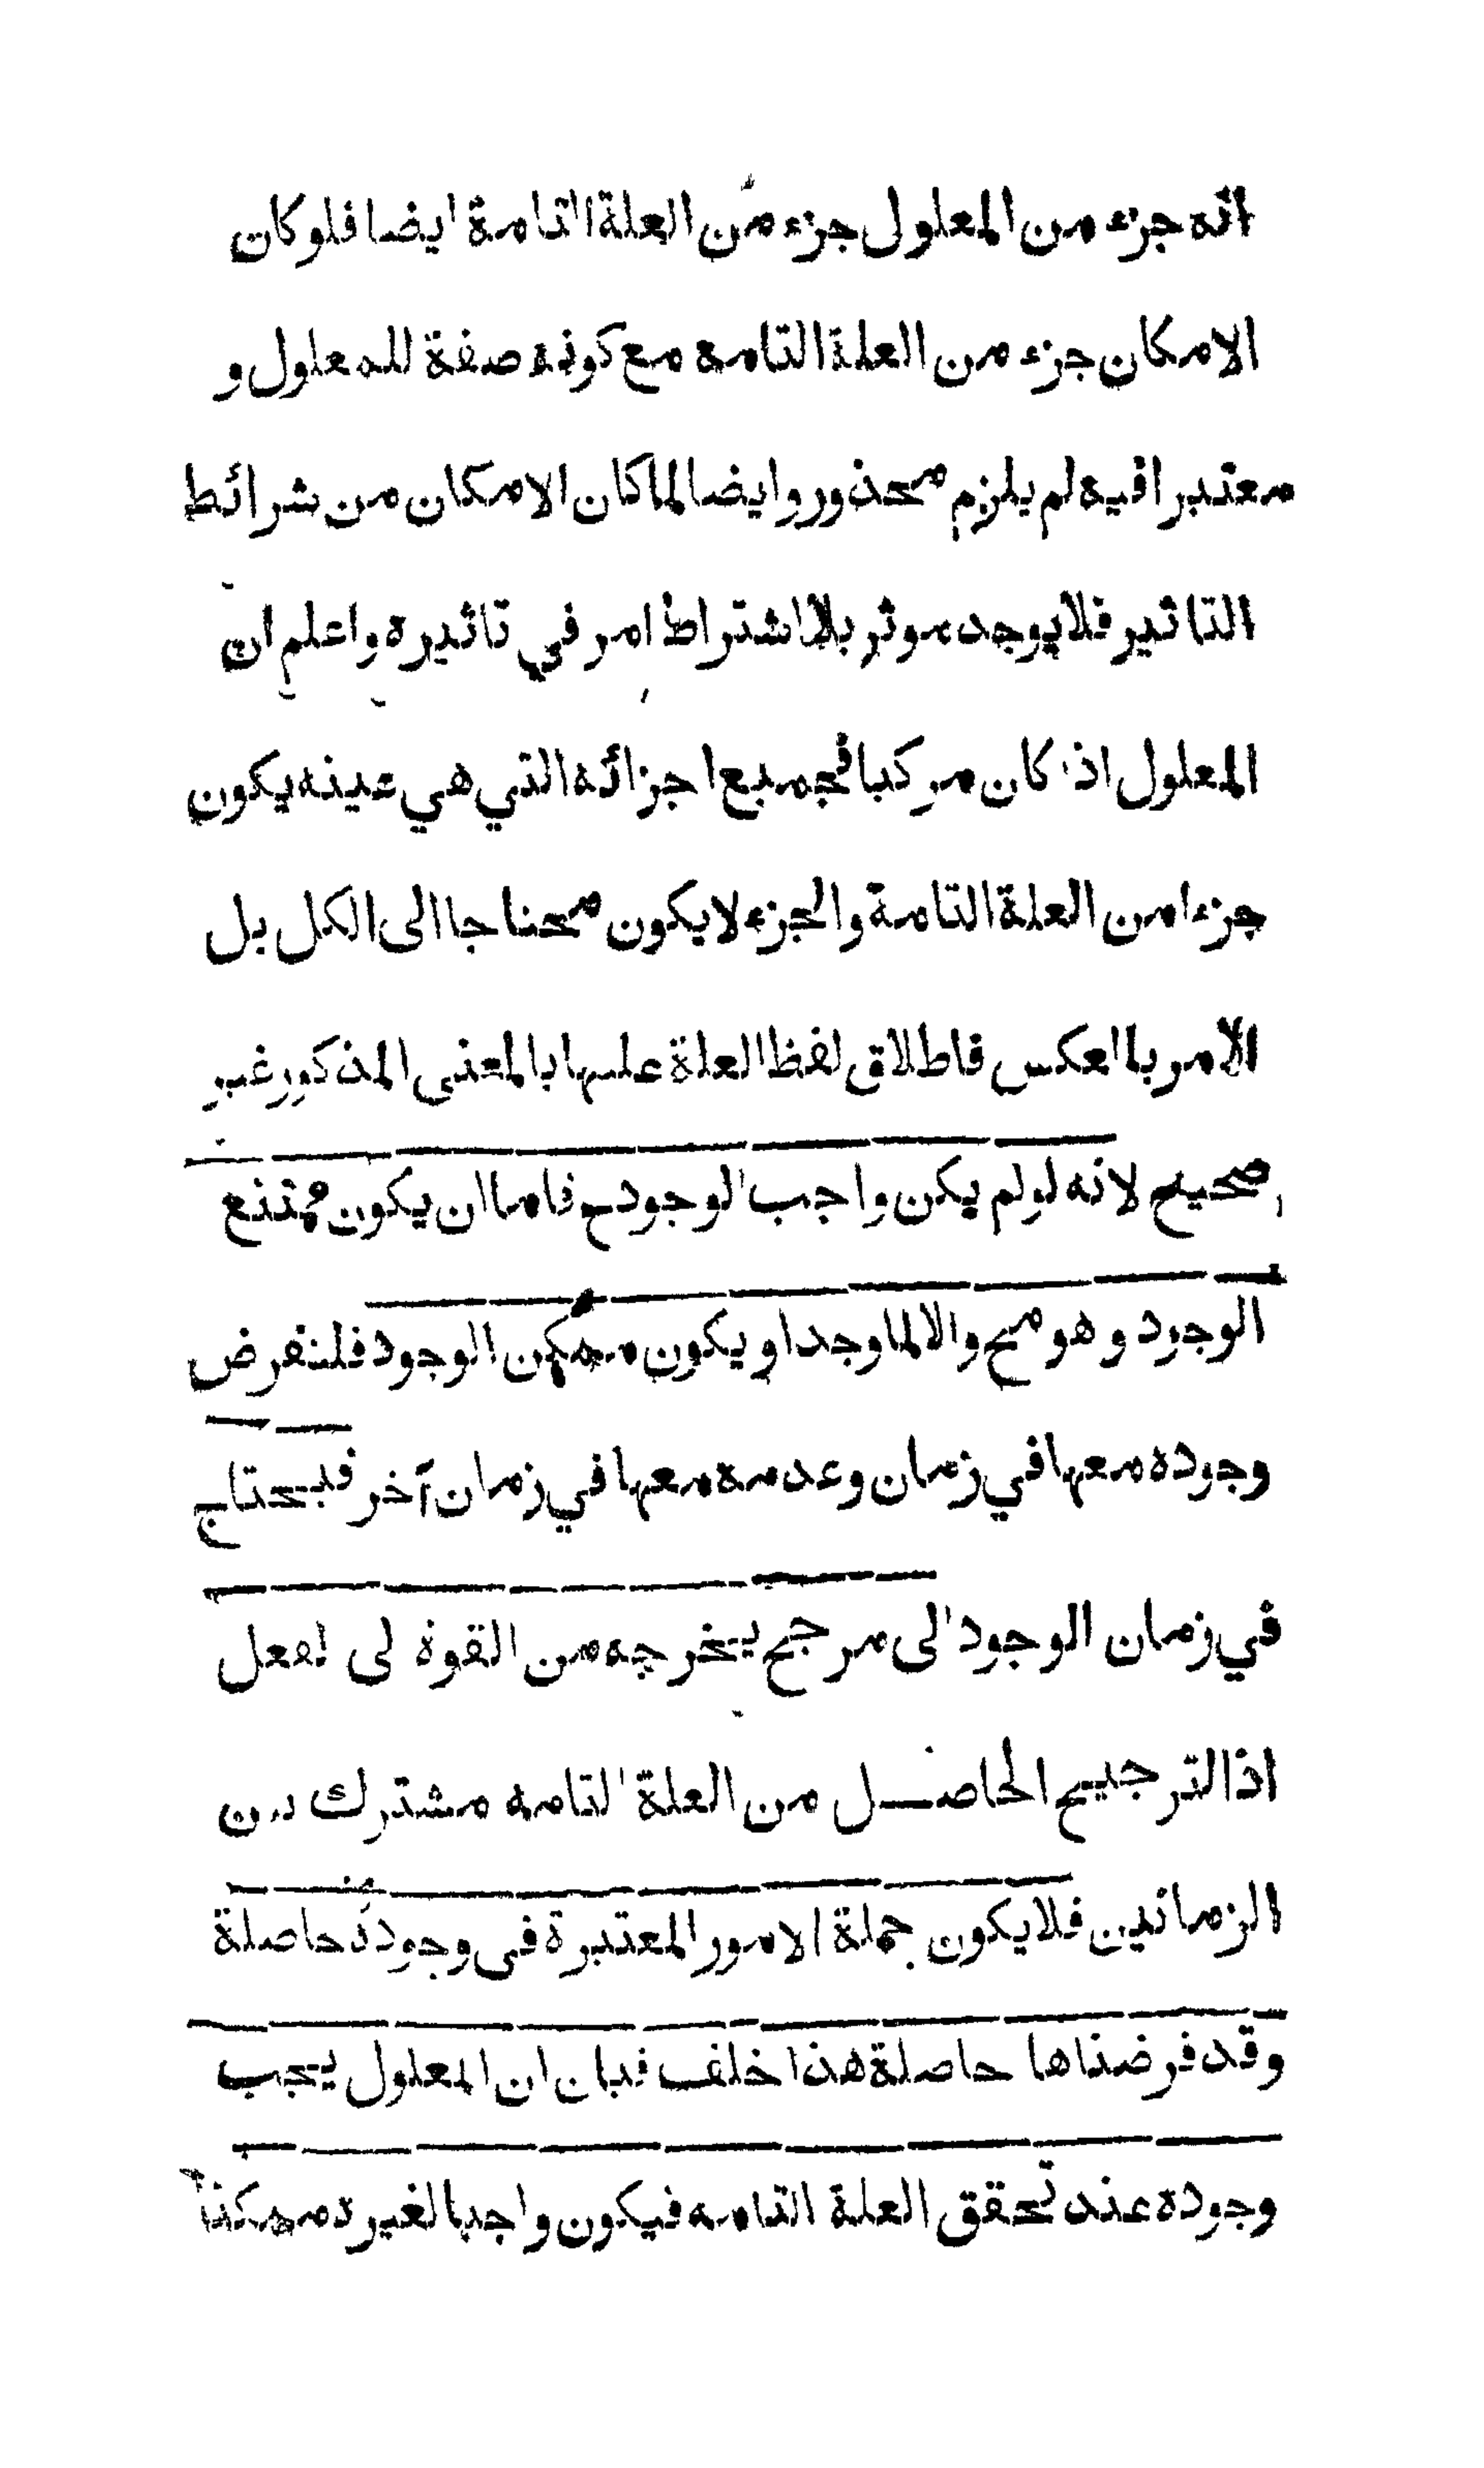 انه جزء من المعلول جزء من العلة التامة ايضا فلو كان
الامكان جزء من العلة التامه مع كونه صفة للمعلول و
معتبرا فيه لم يلزم محذور وايضا لما كان الامكان من شرائط
التاثير فلا يوجد موثر بلا اشتراط امر في تاثيره واعلم ان
المعلول اذا كان مركبا فجميع اجزائه التي هي عينه يكون
جزءا من العلة التامة والجزء لا يكون محتاجا الى الكل بل
الامر بالعكس فاطلاق لفظ العلة عليها بالمعنى المذكور غير
صحيح لانه لو لم يكن واجب الوجود ح فاما ان يكون ممتنع
الوجود و هو مح والا لما وجد او يكون ممكن الوجود فلنفرض
وجوده معها في زمان وعدمه معها في زمان آخر فيحتاج
في زمان الوجود الى مرجح يخرجه من القوة لى لفعل
اذ الترجيح الحاصل من العلة التامه مشترك بين
الزمانين فلا يكون جملة الامور المعتبرة في وجوده حاصلة
وقد فرضناها حاصلة هذا خلف فبان ان المعلول يجب
وجوده عند تحقق العلة التامه فيكون واجبا لغيره ممكنا